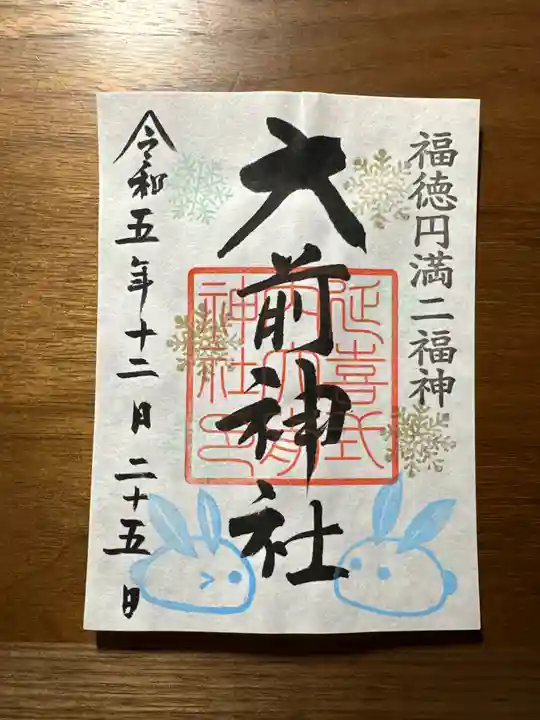 福徳円満二福神
大前神社
延喜式
内大前
神社印
令和五年十二月二十五日